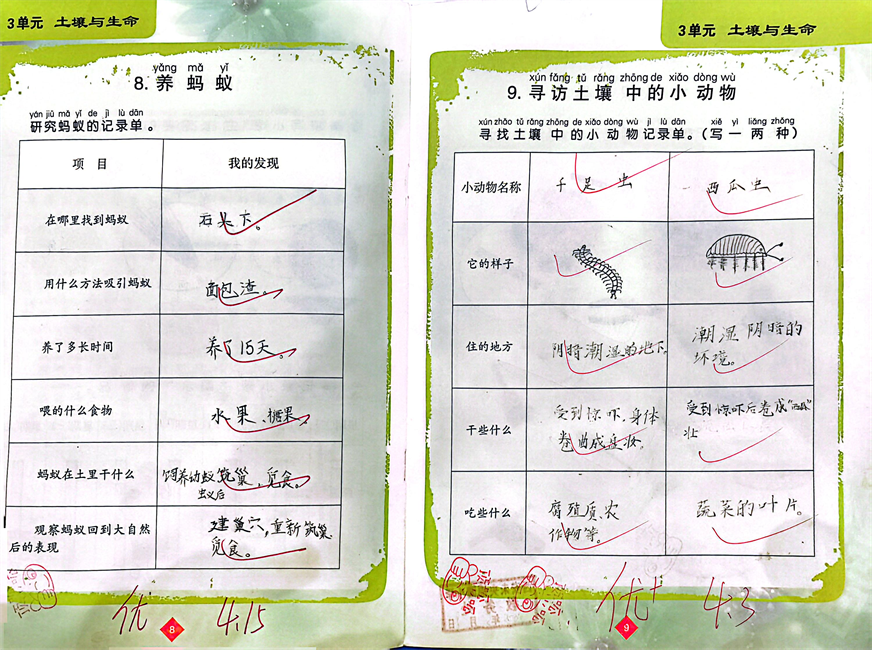 3单元 土壤与生命
yǎng mǎ yǐ
8. 养蚂蚁
yán jiū mǎ yǐ de jì lù dān
研究蚂蚁的记录单。
项 目 我的发现
在哪里找到蚂蚁 石头下。
用什么方法吸引蚂蚁 面包渣。
养了多长时间 养了15天。
喂的什么食物 水果、糖果。
蚂蚁在土里干什么 饲养幼蚁筑巢,觅食。
虫义后
观察蚂蚁回到大自然 建巢穴,重新筑巢
后的表现 觅食。
优 8 4.15
3单元 土壤与生命
xún fǎng tǔ rǎng zhōng de xiǎo dòng wù
9. 寻访土壤中的小动物
xún zhǎo tǔ rǎng zhōng de xiǎo dòng wù jì lù dān xiě yì liǎng zhǒng
寻找土壤中的小动物记录单。(写一两种)
小动物名称 千足虫 西瓜虫
它的样子
住的地方 阴暗潮湿的地下。 潮湿阴暗的
环境。
干些什么 受到惊吓,身体 受到惊吓后卷成"西瓜"
卷曲成 状。 状
吃些什么 腐殖质、农 蔬菜的叶片。
作物等。
优+ 9 4.3